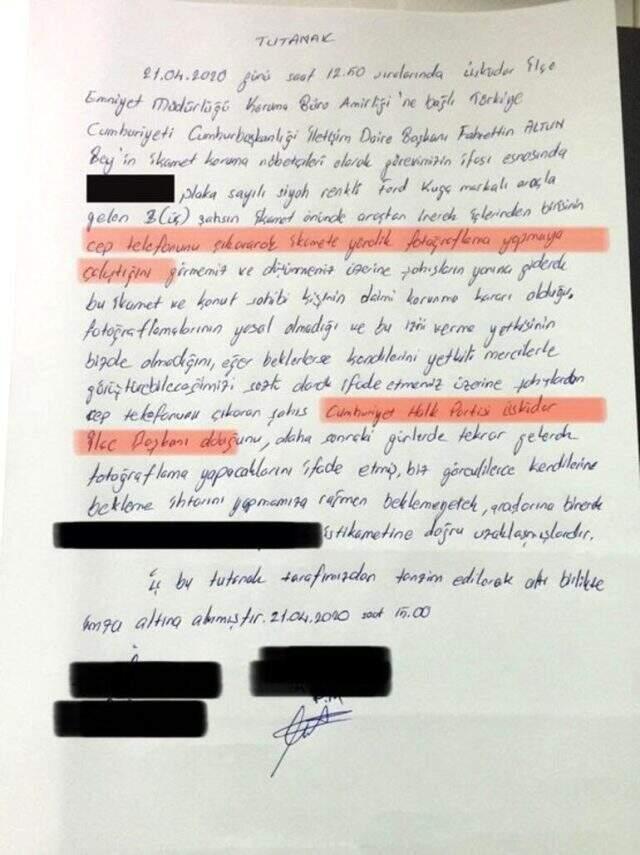 TUTANAK
21.04.2020 günü saat 12.50 sıralarında Üsküdar İlçe
Emniyet Müdürlüğü Koruma Büro Amirliği'ne bağlı Türkiye
Cumhuriyeti Cumhurbaşkanlığı İletişim Daire Başkanı Fahrettin ALTUN
Bey'in ikamet koruma nöbetçileri olarak görevimizin ifası esnasında
plaka sayılı siyah renkli Ford Kuga markalı araçla
gelen 3(üç) şahsın ikamet önünde araçtan inerek içlerinden birisinin
cep telefonunu çıkararak ikamete yönelik fotoğraflama yapmaya
çalıştığını görmemiz ve üzerine şahısların yanına giderek
bu ikamet ve konut sahibi kişinin daimi koruma kararı olduğu,
fotoğraflamalarının yasal olmadığı ve bu izni verme yetkisinin
bizde olmadığını, eğer beklerlerse kendilerini yetkili mercilerle
görüştürebileceğimizi sözlü olarak ifade etmemiz üzerine şahıslardan
cep telefonunu çıkaran şahıs Cumhuriyet Halk Partisi Üsküdar
İlçe Başkanı olduğunu, daha sonraki günlerde tekrar gelerek
fotoğraflama yapacaklarını ifade etmiş, biz görevlilerce kendilerine
bekleme ihtarını yapmamıza rağmen beklemeyerek, araçlarına binerek
istikametine doğru uzaklaşmışlardır.
İş bu tutanak tarafımızdan tanzim edilerek altı birlikte
imza altına alınmıştır. 21.04.2020 saat 15.00